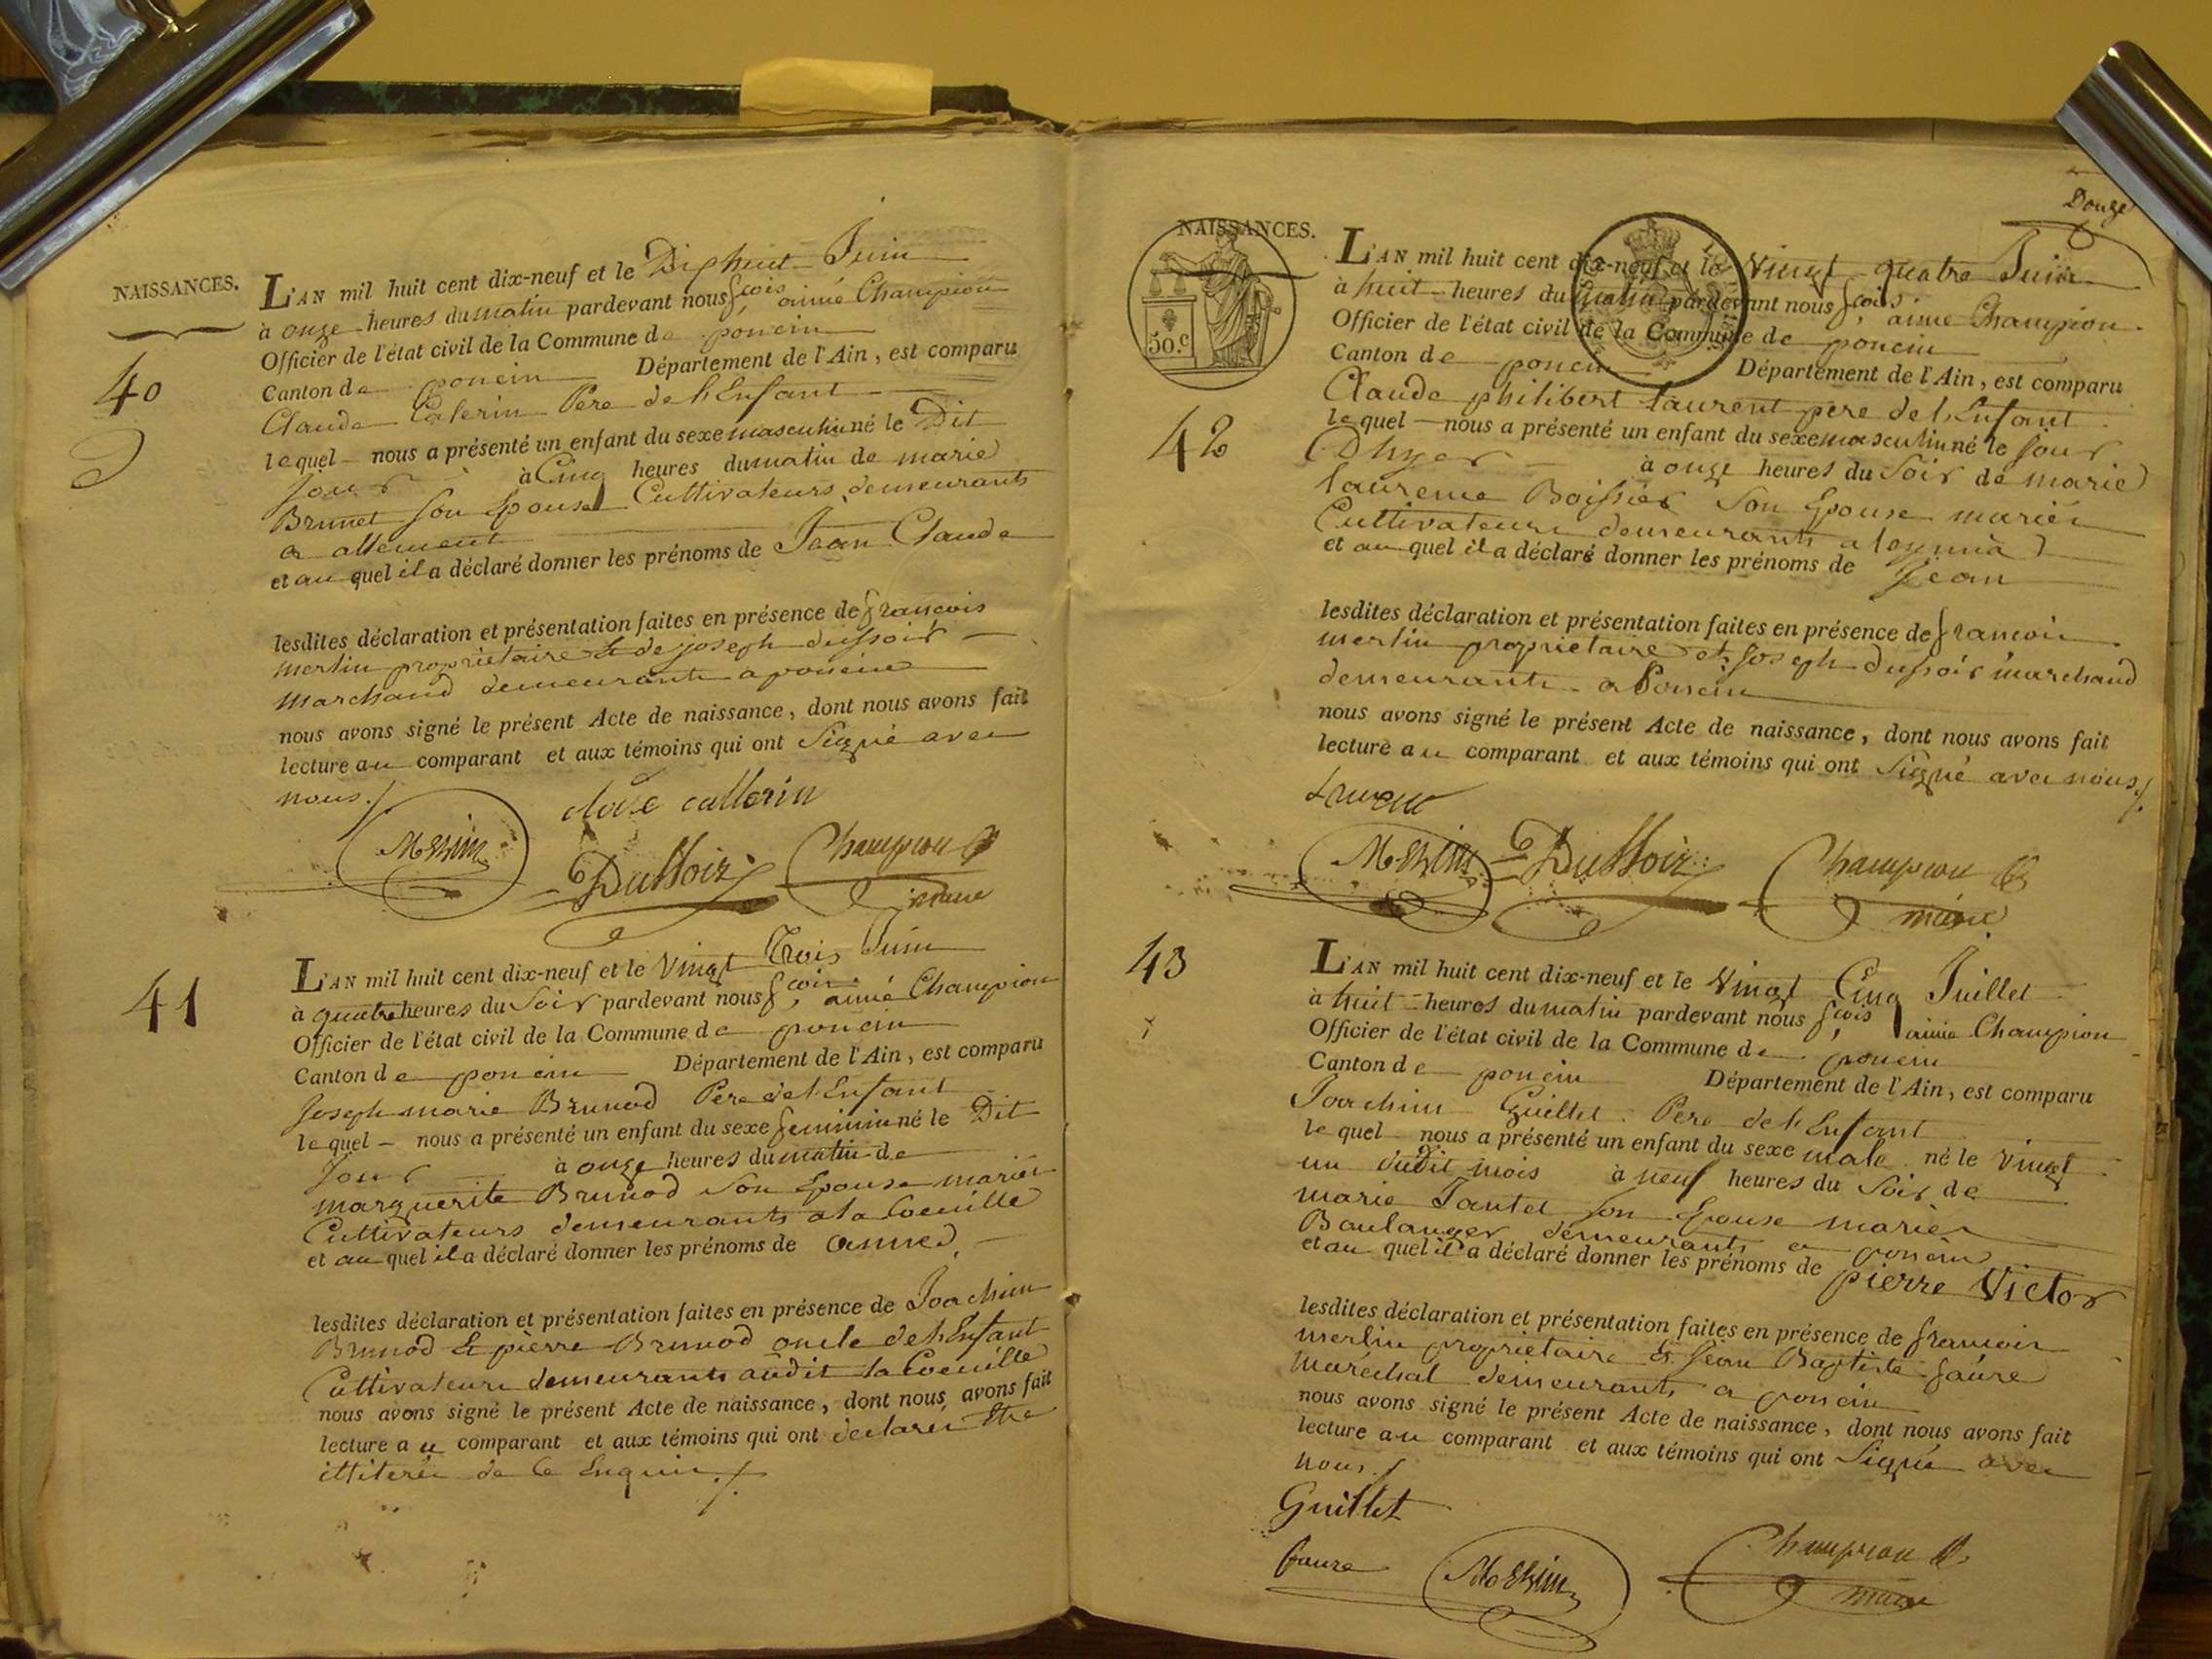 NAISSANCES.
40
L'AN mil huit cent dix-neuf et le Dix huit Juin
à onze heures du matin pardevant nous fcois aimé Champion
Officier de l'état civil de la Commune de poncin
Canton de poncin Département de l'Ain, est comparu
Claude Caterin Pere de l'Enfant
lequel nous a présenté un enfant du sexe masculin né le Dit
Jour à Cinq heures du matin de marie
Brunet son Epouse Cultivateurs demeurants
a allement
et au quel il a déclaré donner les prénoms de Jean Claude
lesdites déclaration et présentation faites en présence de francois
merlin proprietaire & de joseph dussoir
marchand demeurants a poncin
nous avons signé le présent Acte de naissance, dont nous avons fait
lecture au comparant et aux témoins qui ont Signé avec
nous./.
Merlin
Dussoir
Champion
maire
41
L'AN mil huit cent dix-neuf et le Vingt Trois Juin
à quatre heures du Soir pardevant nous fcois aimé Champion
Officier de l'état civil de la Commune de poncin
Canton de poncin Département de l'Ain, est comparu
Joseph marie Brunod Pere de l'Enfant
lequel nous a présenté un enfant du sexe feminin né le Dit
Jour à onze heures du matin de
marguerite Brunod son Epouse mariés
Cultivateurs demeurants a la Coeuille
et au quel il a déclaré donner les prénoms de anne
lesdites déclaration et présentation faites en présence de Joachim
Brunod & pierre Brunod oncle de l'Enfant
Cultivateurs demeurants audit la Coeuille
nous avons signé le présent Acte de naissance, dont nous avons fait
lecture au comparant et aux témoins qui ont declarés être
illiterés de ce Enquis./.
Douze
NAISSANCES.
50.c
42
L'AN mil huit cent dix-neuf et le Vingt quatre Juin
à huit heures du matin pardevant nous fcois aimé Champion
Officier de l'état civil de la Commune de poncin
Canton de poncin Département de l'Ain, est comparu
Claude philibert laurent pere de l'Enfant
lequel nous a présenté un enfant du sexe masculin né le Jour
Dhyer à onze heures du Soir de marie
laurence Boissier Son Epouse mariés
Cultivateurs demeurants a leymia
et au quel il a déclaré donner les prénoms de Jean
lesdites déclaration et présentation faites en présence de francois
merlin proprietaire et Joseph dussoir marchand
demeurants a Poncin
nous avons signé le présent Acte de naissance, dont nous avons fait
lecture au comparant et aux témoins qui ont Signé avec nous./.
Laurent
Merlin
Dussoir
Champion
maire
43
L'AN mil huit cent dix-neuf et le Vingt Cinq Juillet
à huit heures du matin pardevant nous fcois aimé Champion
Officier de l'état civil de la Commune de poncin
Canton de poncin Département de l'Ain, est comparu
Joachim Guillet Pere de l'Enfant
lequel nous a présenté un enfant du sexe male né le Vingt
un dudit mois à neuf heures du Soir de
marie Tantet son Epouse mariés
Boulanger demeurants a poncin
et au quel il a déclaré donner les prénoms de pierre Victor
lesdites déclaration et présentation faites en présence de francois
merlin proprietaire & Jean Baptiste faure
marechal demeurants a poncin
nous avons signé le présent Acte de naissance, dont nous avons fait
lecture au comparant et aux témoins qui ont Signé avec
nous./
Guillet
faure
Merlin
Champion
maire